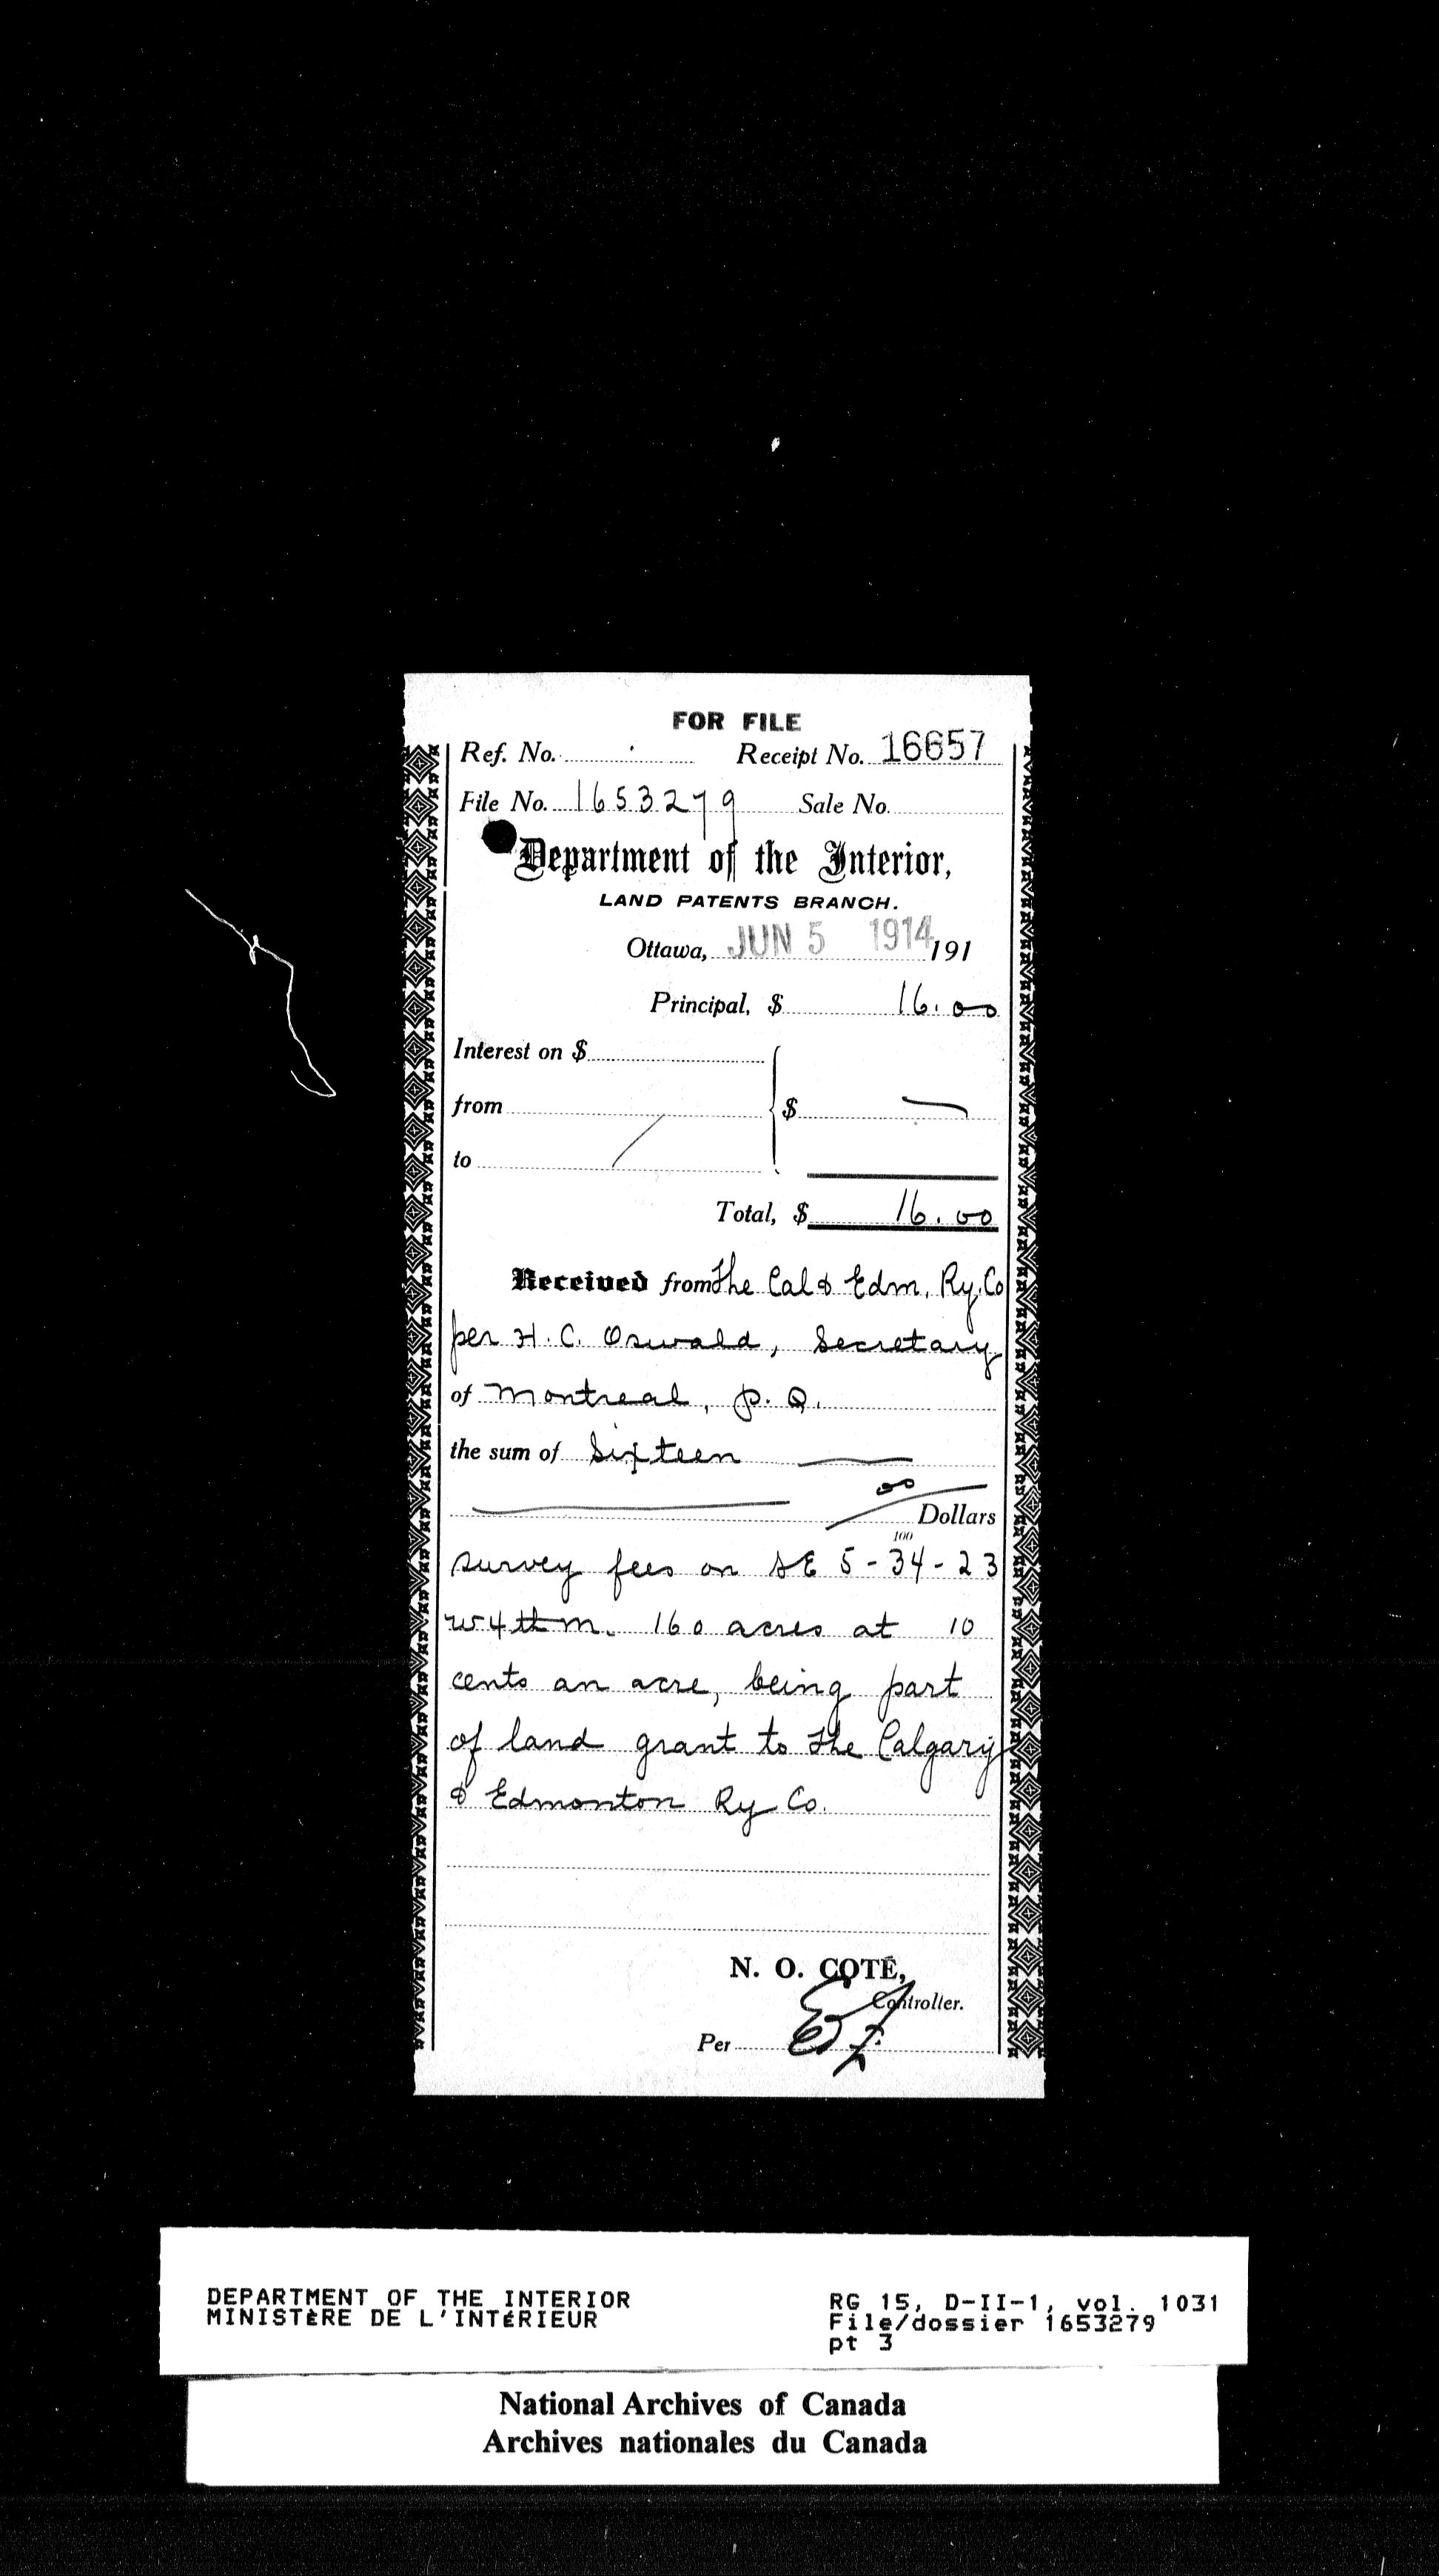 FOR FILE
Ref. No. Receipt No. 16657
File No. 1653279 Sale No.
Department of the Interior,
LAND PATENTS BRANCH.
Ottawa, JUN 5 1914 191
Principal, $ 16.00
Interest on $
from $ —
to
Total, $ 16.00
Received from The Cal & Edm. Ry. Co
per H. C. Oswald, Secretary
of Montreal, P. Q.
the sum of Sixteen
00/100 Dollars
survey fees on SE 5-34-23
W 4th M. 160 acres at 10
cents an acre, being part
of land grant to the Calgary
& Edmonton Ry Co.
N. O. COTÉ,
Controller.
Per
DEPARTMENT OF THE INTERIOR
MINISTÈRE DE L'INTÉRIEUR
RG 15, D-II-1, vol. 1031
File/dossier 1653279
pt 3
National Archives of Canada
Archives nationales du Canada